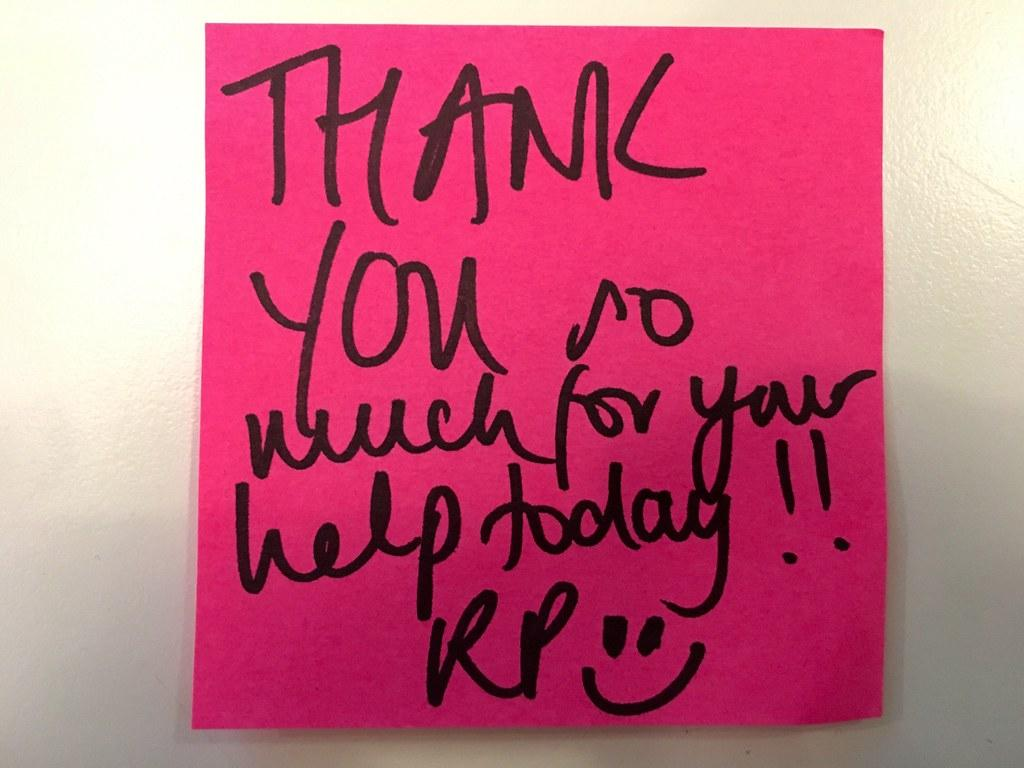 THANK
YOU so
much for your
help today !!
RP